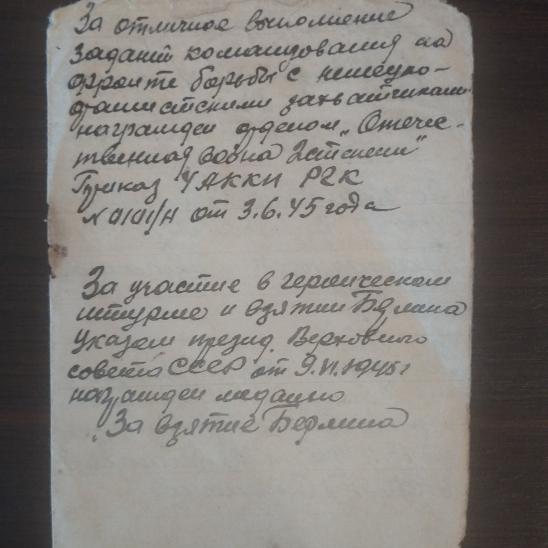 За отличное выполнение
заданий командования на
фронте борьбы с немецко-
фашистскими захватчиками
награжден орденом „Отече-
ственная война 2й степени"
Приказ 4 АККП РГК
от 3.6.45 года
За участие в героическом
штурме и взятии Берлина
указом презид. Верховного
совета СССР от 9.VI.1945г
награжден медалью
„За взятие Берлина